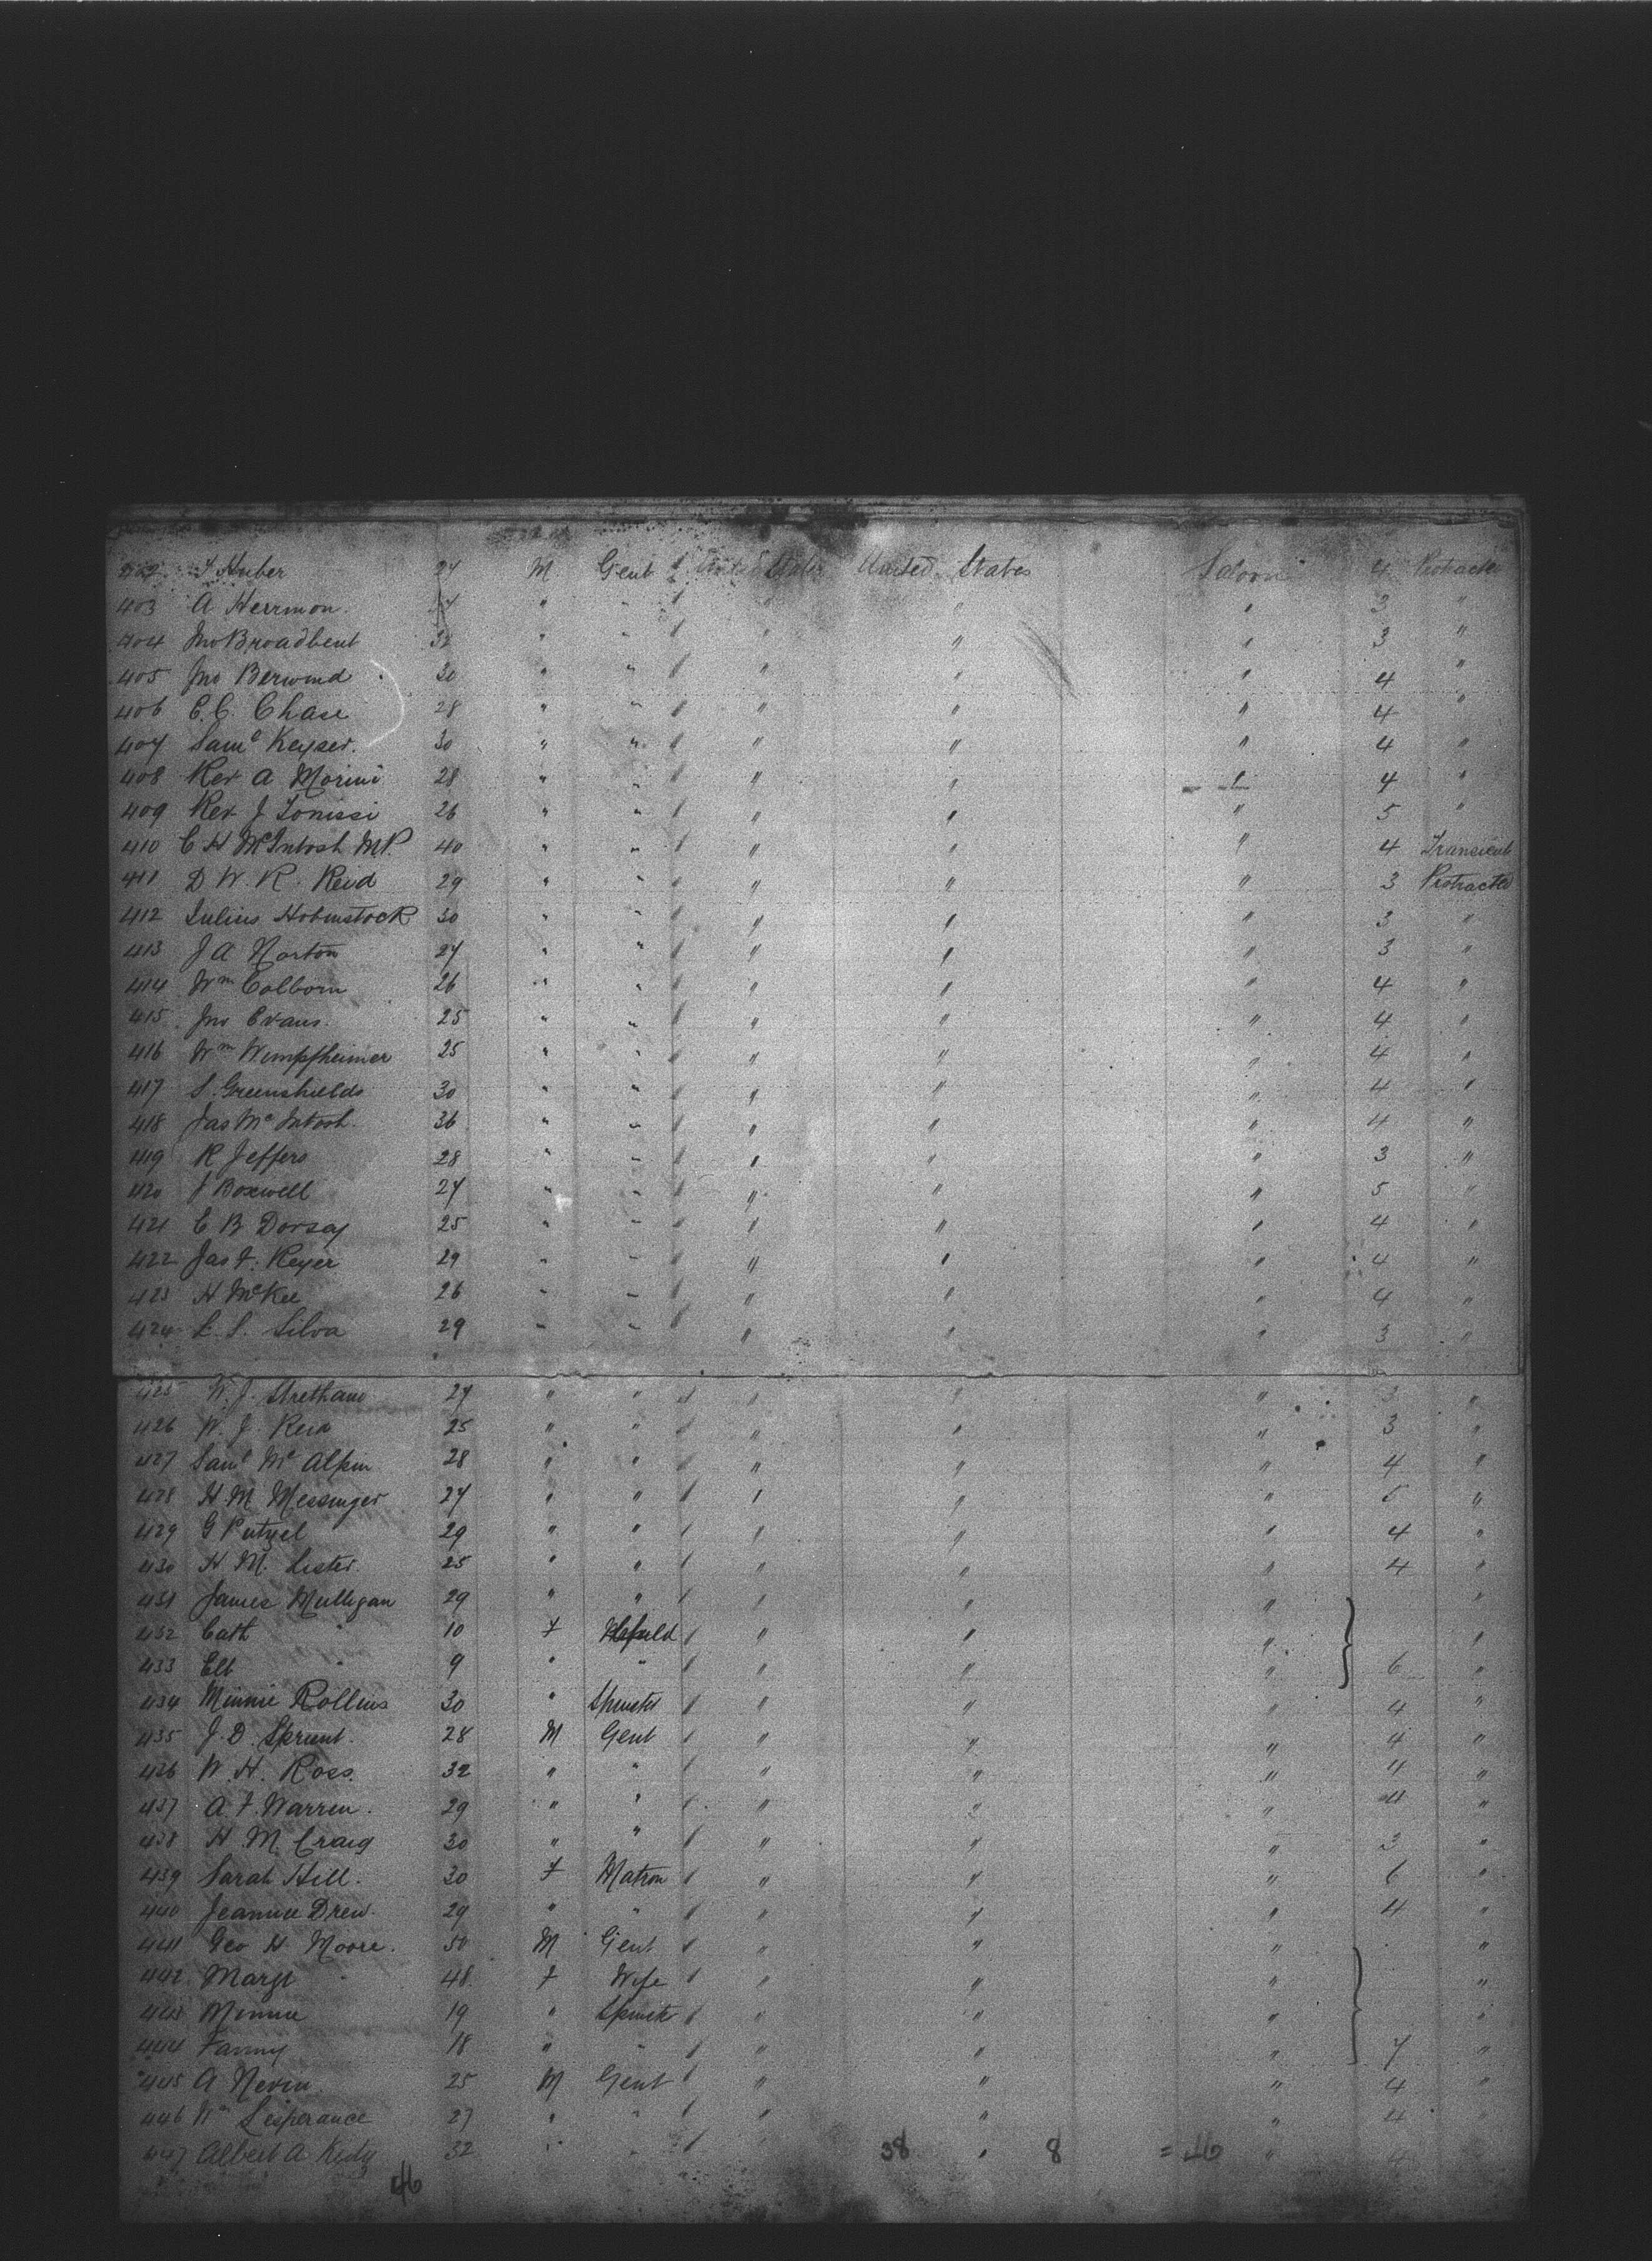 402 J Huber 24 M Gent United States United States Saloon 4 Protracted
403 A Herrmon. " " " " " 3 "
404 Jno Broadbent 32 " " " " " 3 "
405 Jno Berwind 30 " " " " " 4 "
406 C. C. Chase 28 " " " " " 4 "
407 Saml Keyser. 30 " " " " " 4 "
408 Rev A Morini 28 " " " " " 4 "
409 Rev J Tonissi 26 " " " " " 5 "
410 C H McIntosh M.P. 40 " " " " " 4 Transient
411 D W. R. Reid 29 " " " " " 3 Protracted
412 Julius Holmstock 30 " " " " " 3 "
413 J A Norton 27 " " " " " 3 "
414 Wm Colborn 26 " " " " " 4 "
415 Jno Evans. 25 " " " " " 4 "
416 Wm Wimpfheimer 25 " " " " " 4 "
417 S. Greenshields 30 " " " " " 4 "
418 Jas McIntosh. 36 " " " " " 4 "
419 R Jeffers 28 " " " " " 3 "
420 J Boxwell 27 " " " " " 5 "
421 C B Dorsay 25 " " " " " 4 "
422 Jas F. Keyer 29 " " " " " 4 "
423 H McKee 26 " " " " " 4 "
424 L. S. Silva 29 " " " " " 3 "
425 W. J. 27 " " " " " 3 "
426 W. J. Reid 25 " " " " " 3 "
427 Saml McAlpin 28 " " " " " 4 "
428 H. M. Messinger 27 " " " " " 5 "
429 G Putzel 29 " " " " " 4 "
430 H M. Lister. 25 " " " " " 4 "
431 James Mulligan 29 " " " " " "
432 Cath " 10 F " " " "
433 Elb " 9 " " " " " 6 "
434 Minnie Rollins 30 " Spinster " " " 4 "
435 J. D. Sprunt. 28 M Gent " " " 4 "
436 W. H. Ross. 32 " " " " " 4 "
437 A. F. Warren. 29 " " " " " 4 "
438 H M Craig 30 " " " " " 3 "
439 Sarah Hill. 30 F Matron " " " 6 "
440 Jeannie Drew. 29 " " " " " 4 "
441 Geo H. Moore. 50 M Gent " " " "
442 Margt " 48 F Wife " " " "
443 Minnie 19 " Spinstr " " " "
444 Fanny 18 " " " " " 7 "
445 A Nevin. 25 M Gent " " " 4 "
446 Wm Lesperance 27 " " " " " 4 "
447 Albert A 32 " " " 38 " 8 = 46 " 4
46